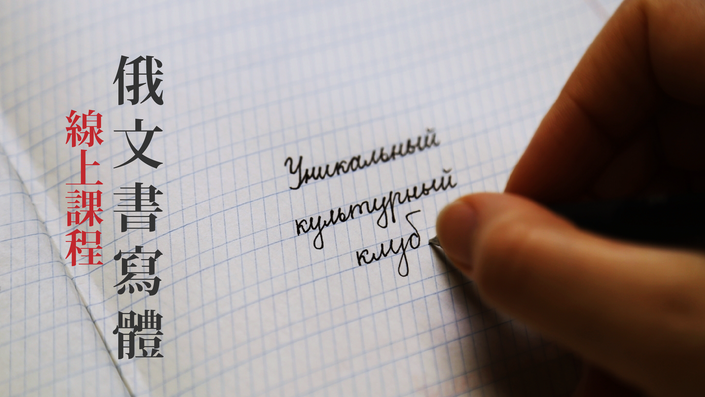 俄文書寫體
線上課程
Уникальный
культурный
клуб